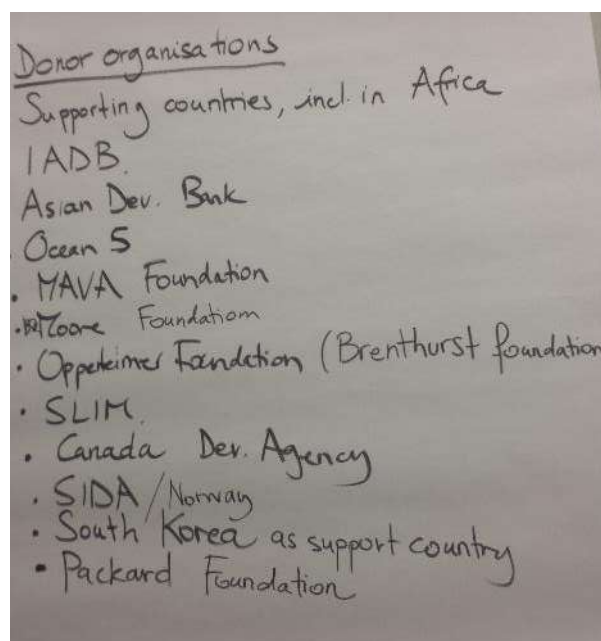 Donor organisations
Supporting countries, incl. in Africa
IADB.
Asian Dev. Bank
Ocean 5
• MAVA Foundation
• Moore Foundation
• Oppeteimer Foundation (Brenthurst foundation
• SLIM.
• Canada Dev. Agency
• SIDA/Norway
• South Korea as support country
• Packard Foundation